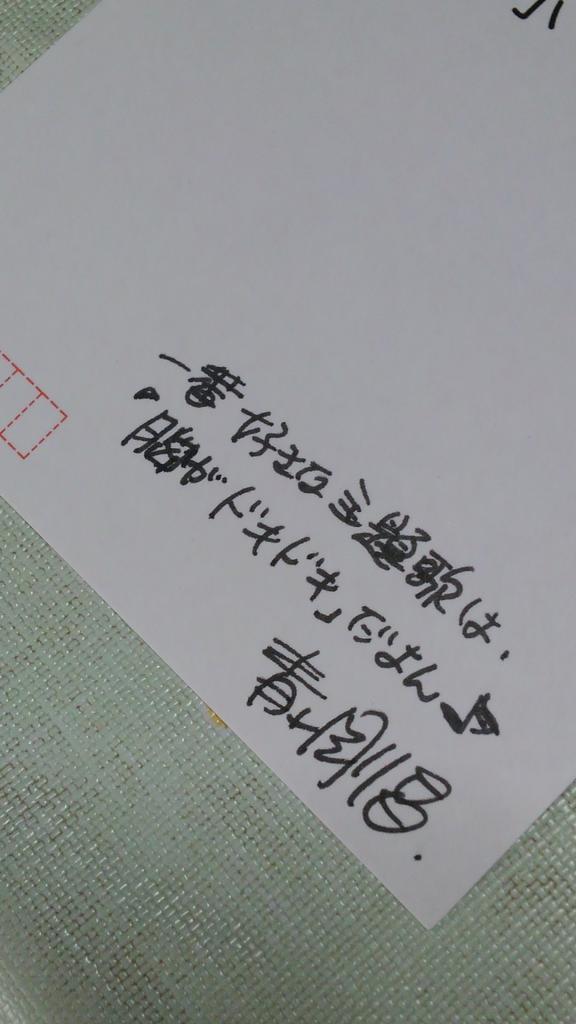 一番好きな主題歌は、
「胸がドキドキ」だよん♪
青山剛昌